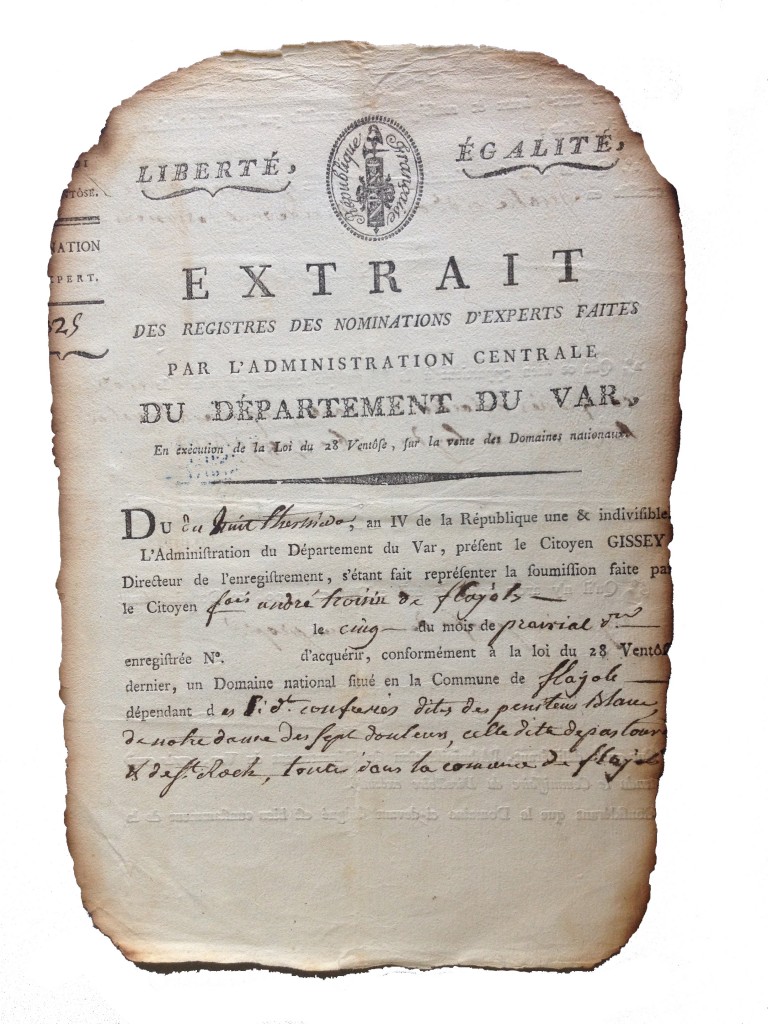 LIBERTÉ,
République Française
ÉGALITÉ,
EXTRAIT
DES REGISTRES DES NOMINATIONS D'EXPERTS FAITES
PAR L'ADMINISTRATION CENTRALE
DU DÉPARTEMENT DU VAR,
En exécution de la Loi du 28 Ventôſe, ſur la vente des Domaines nationaux.
NTÔSE.
NATION
XPERT.
325
DU du huit thermidor, an IV de la République une & indiviſible.
L'Adminiſtration du Département du Var, préſent le Citoyen GISSEY
Directeur de l'enregiſtrement, s'étant fait repréſenter la ſoumiſſion faite par
le Citoyen fois andré troisin de flayols
le cinq du mois de prairial dr
enregiſtrée N°. d'acquérir, conformément à la loi du 28 Ventôſ
dernier, un Domaine national ſitué en la Commune de flayols
dépendant des confreries dites des penitens blancs,
de notre dame des sept douleurs, celle dite depastoure
& de St. Roch, toutes dans la commune de flayols